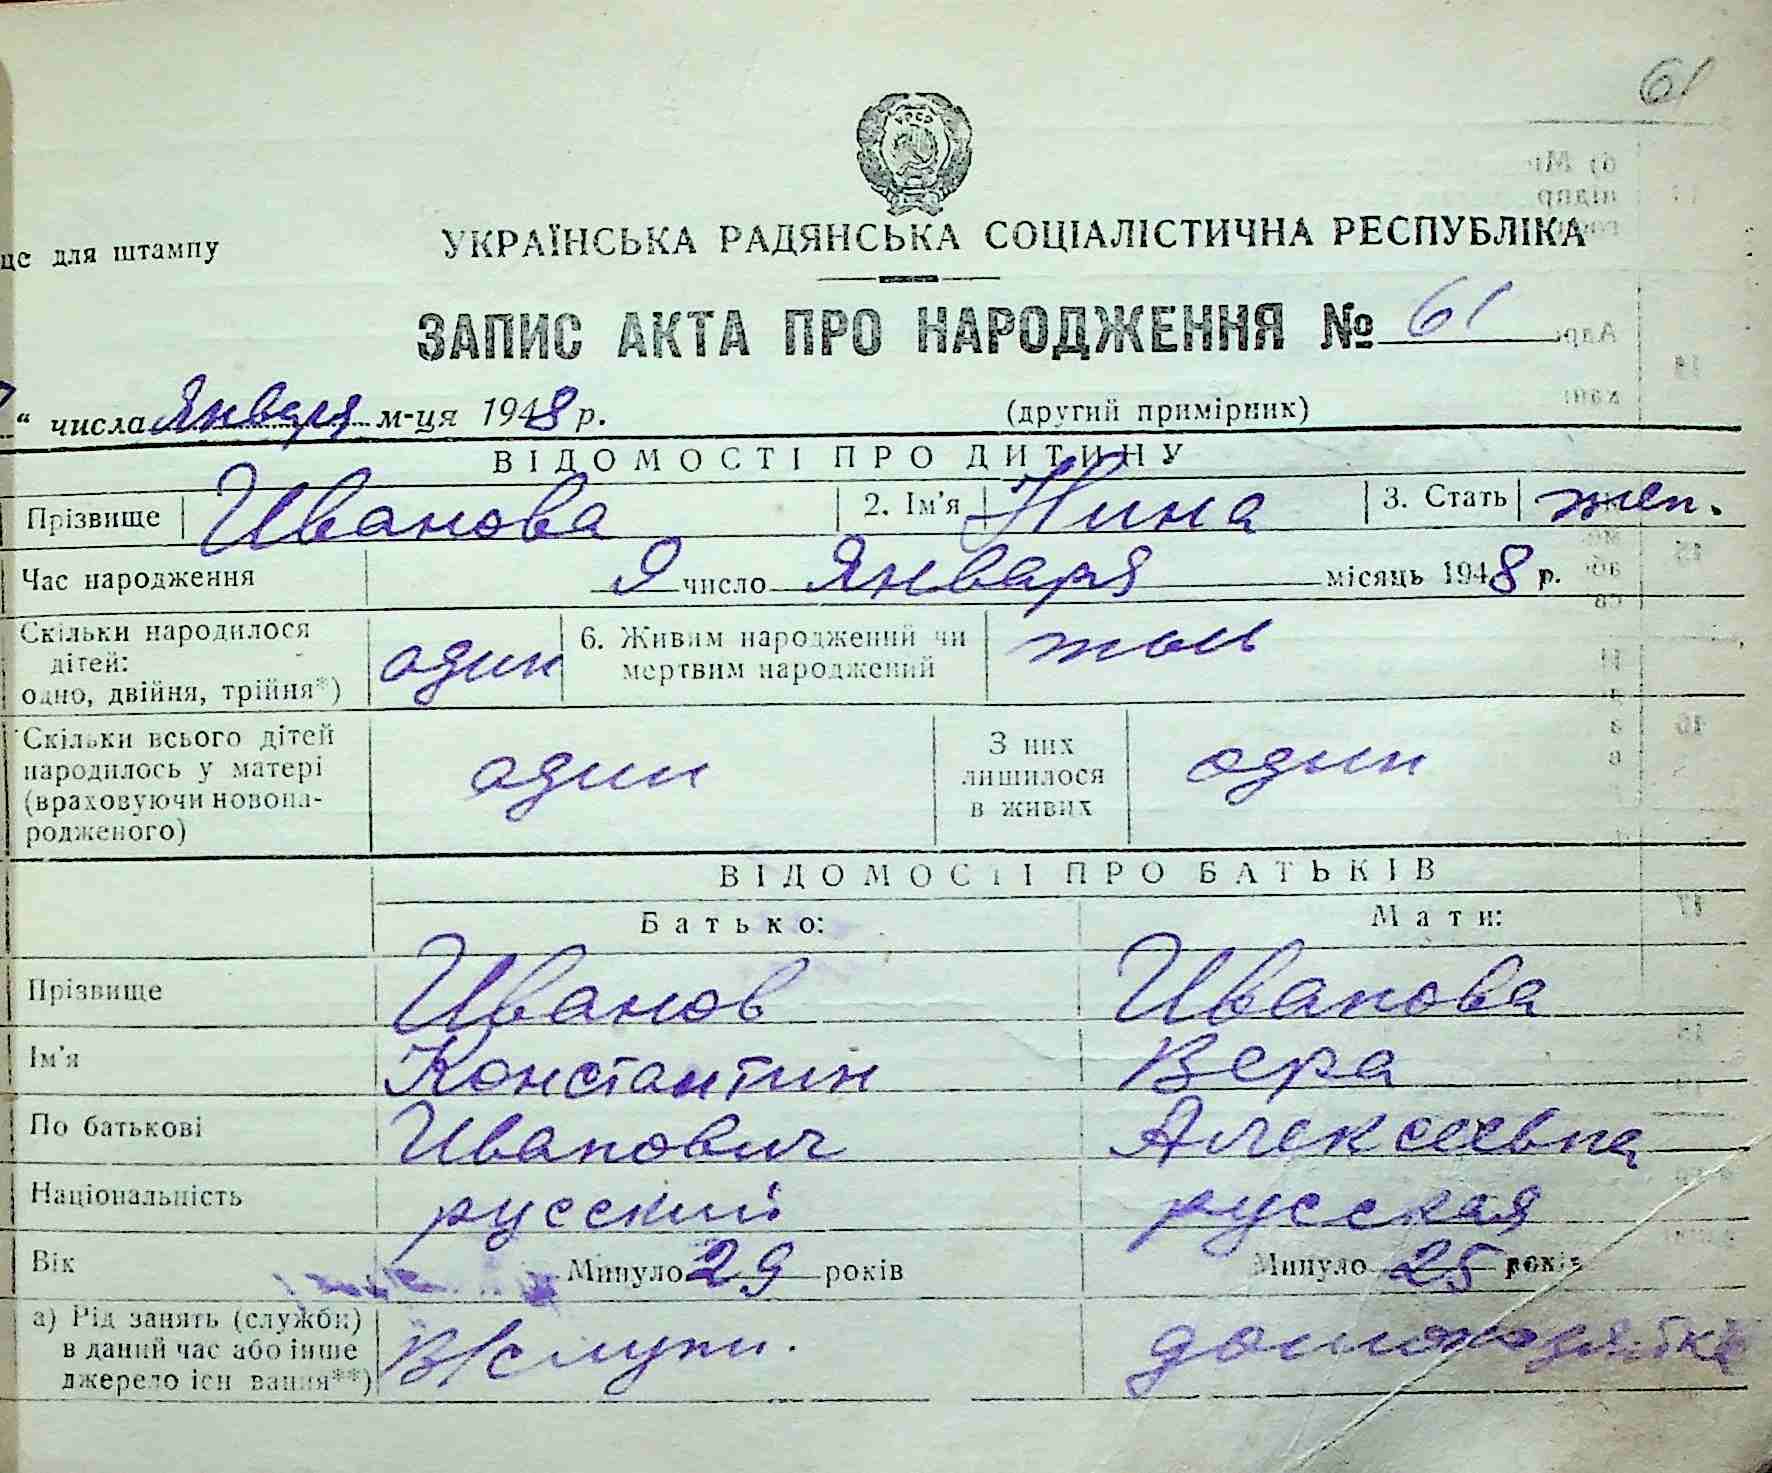 61
УРСР
це для штампу
УКРАЇНСЬКА РАДЯНСЬКА СОЦІАЛІСТИЧНА РЕСПУБЛІКА
ЗАПИС АКТА ПРО НАРОДЖЕННЯ № 61
“ числа Января м-ця 1948 р.
(другий примірник)
ВІДОМОСТІ ПРО ДИТИНУ
Прізвище Иванова 2. Ім'я Нина 3. Стать жен.
Час народження 9 число Января місяць 1948 р.
Скільки народилося
дітей:
одно, двійня, трійня*)
один
6. Живим народжений чи
мертвим народжений
Скільки всього дітей
народилось у матері
(враховуючи новона-
родженого)
один
З них
лишилося
в живих
один
ВІДОМОСТІ ПРО БАТЬКІВ
Батько: Мати:
Прізвище Иванов Иванова
Ім'я Константин Вера
По батькові Иванович Алексеевна
Національність русский русская
Вік Минуло 29 років Минуло 25 років
а) Рід занять (служби)
в даний час або інше
джерело існування**)
в/служ. домохозяйка